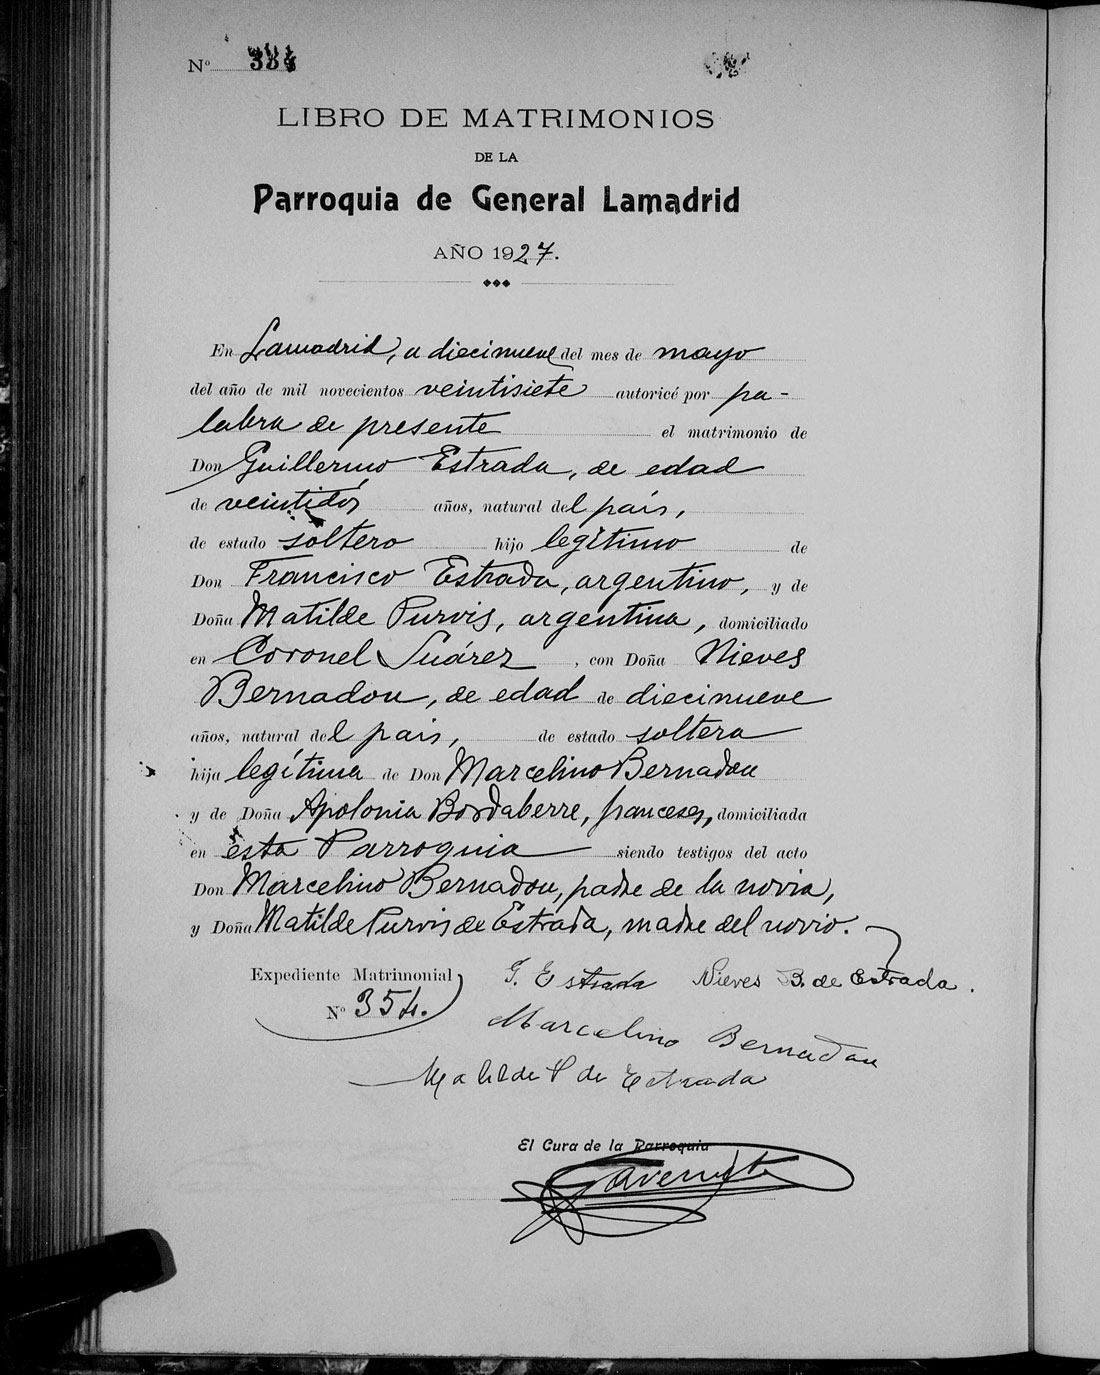 Nº 334
LIBRO DE MATRIMONIOS
DE LA
Parroquia de General Lamadrid
AÑO 1927.
En Lamadrid, a diecinueve del mes de mayo
del año de mil novecientos veintisiete autoricé por pa-
labra de presente el matrimonio de
Don Guillermo Estrada, de edad
de veintidós años, natural del país,
de estado soltero hijo legítimo de
Don Francisco Estrada, argentino, y de
Doña Matilde Purvis, argentina, domiciliado
en Coronel Suárez, con Doña Nieves
Bernadou, de edad de diecinueve
años, natural del país, de estado soltera
hija legítima de Don Marcelino Bernadou
y de Doña Apolonia Bordaberre, franceses, domiciliada
en esta Parroquia siendo testigos del acto
Don Marcelino Bernadou, padre de la novia,
y Doña Matilde Purvis de Estrada, madre del novio.
Expediente Matrimonial G. Estrada Nieves B. de Estrada.
Nº 354.
Marcelino Bernadou
Matilde P de Estrada
El Cura de la Parroquia